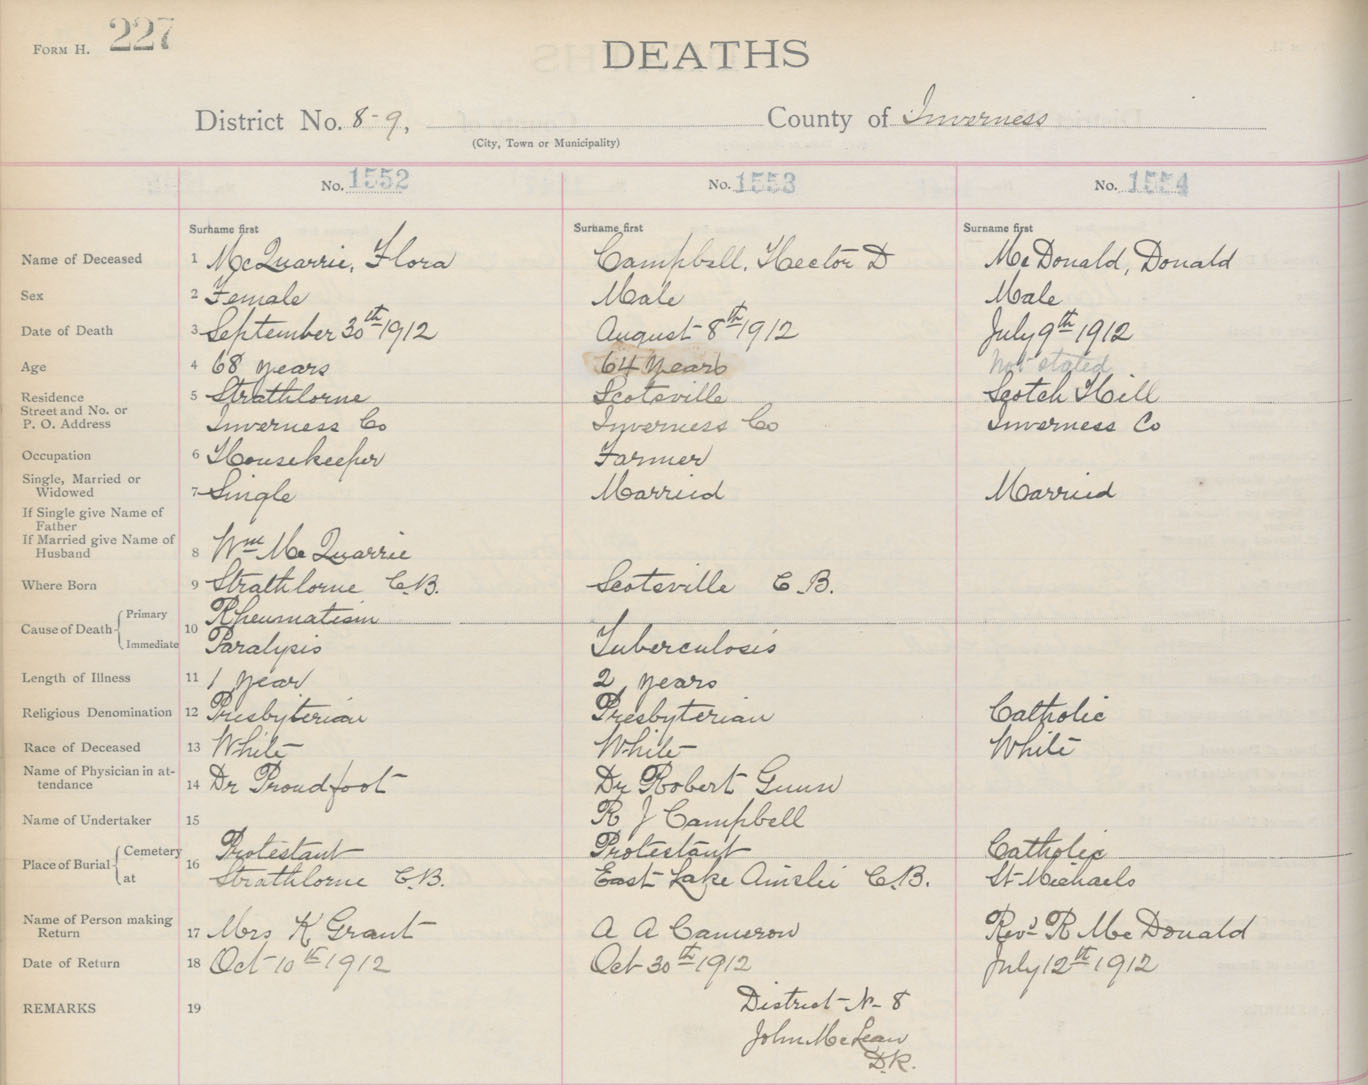 FORM H. 227
DEATHS
District No. 8-9, County of Inverness
(City, Town or Municipality)
No. 1552 No. 1553 No. 1554
Surname first Surname first Surname first
Name of Deceased 1 McQuarrie, Flora Campbell, Hector D McDonald, Donald
Sex 2 Female Male Male
Date of Death 3 September 30th 1912 August 8th 1912 July 9th 1912
Age 4 68 years 64 years Not stated
Residence 5 Strathlorne Scotsville Scotch Hill
Street and No. or
P. O. Address Inverness Co Inverness Co Inverness Co
Occupation 6 Housekeeper Farmer
Single, Married or
Widowed 7 Single Married Married
If Single give Name of
Father
If Married give Name of
Husband 8 Wm McQuarrie
Where Born 9 Strathlorne C.B. Scotsville C.B.
Cause of Death Primary 10 Rheumatism
Immediate Paralysis Tuberculosis
Length of Illness 11 1 year 2 years
Religious Denomination 12 Presbyterian Presbyterian Catholic
Race of Deceased 13 White White White
Name of Physician in at-
tendance 14 Dr Proudfoot Dr Robert Gunn
Name of Undertaker 15 R J Campbell
Place of Burial Cemetery 16 Protestant Protestant Catholic
at Strathlorne C.B. East Lake Ainslie C.B. St Michaels
Name of Person making
Return 17 Mrs K Grant A A Cameron Revd R McDonald
Date of Return 18 Oct 10th 1912 Oct 30th 1912 July 12th 1912
REMARKS 19 District N- 8
John McLean
D.R.